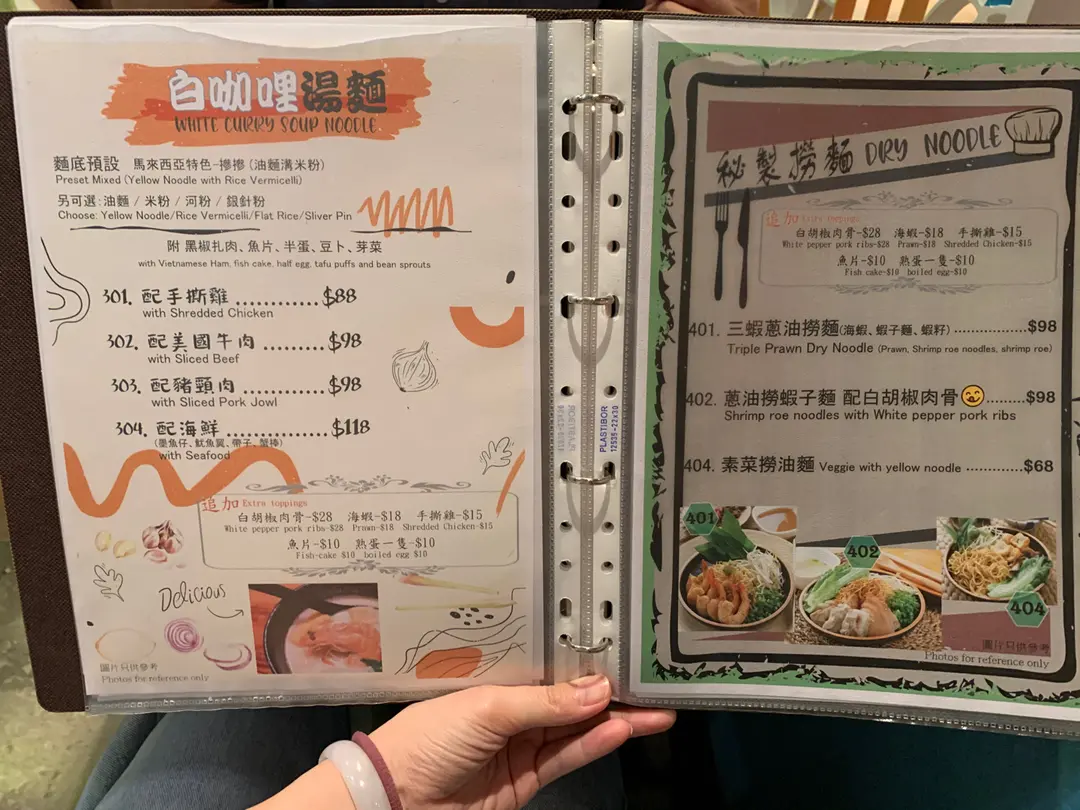 白咖哩湯麵
WHITE CURRY SOUP NOODLE
麵底預設 馬來西亞特色-摻摻 (油麵溝米粉)
Preset Mixed (Yellow Noodle with Rice Vermicelli)
另可選:油麵 / 米粉 / 河粉 / 銀針粉
Choose: Yellow Noodle/Rice Vermicelli/Flat Rice/Sliver Pin
附 黑椒扎肉、魚片、半蛋、豆卜、芽菜
with Vietnamese Ham, fish cake, half egg, tafu puffs and bean sprouts
301. 配手撕雞 ............ $88
with Shredded Chicken
302. 配美國牛肉 ......... $98
with Sliced Beef
303. 配豬頸肉 ............ $98
with Sliced Pork Jowl
304. 配海鮮 ............... $118
(墨魚仔、魷魚翼、帶子、蟹棒)
with Seafood
追加 Extra toppings
白胡椒肉骨-$28 海蝦-$18 手撕雞-$15
White pepper pork ribs-$28 Prawn-$18 Shredded Chicken-$15
魚片-$10 熟蛋一隻-$10
Fish-cake $10 boiled egg $10
Delicious
圖片只供參考
Photos for reference only
PLASTIBOR
秘製撈麵 DRY NOODLE
追加 Extra toppings
白胡椒肉骨-$28 海蝦-$18 手撕雞-$15
White pepper pork ribs-$28 Prawn-$18 Shredded Chicken-$15
魚片-$10 熟蛋一隻-$10
Fish cake-$10 boiled egg-$10
401. 三蝦蔥油撈麵(海蝦、蝦子麵、蝦籽) ................$98
Triple Prawn Dry Noodle (Prawn, Shrimp roe noodles, shrimp roe)
402. 蔥油撈蝦子麵 配白胡椒肉骨😋.........$98
Shrimp roe noodles with White pepper pork ribs
404. 素菜撈油麵 Veggie with yellow noodle .............$68
401
402
404
圖片只供參考
Photos for reference only